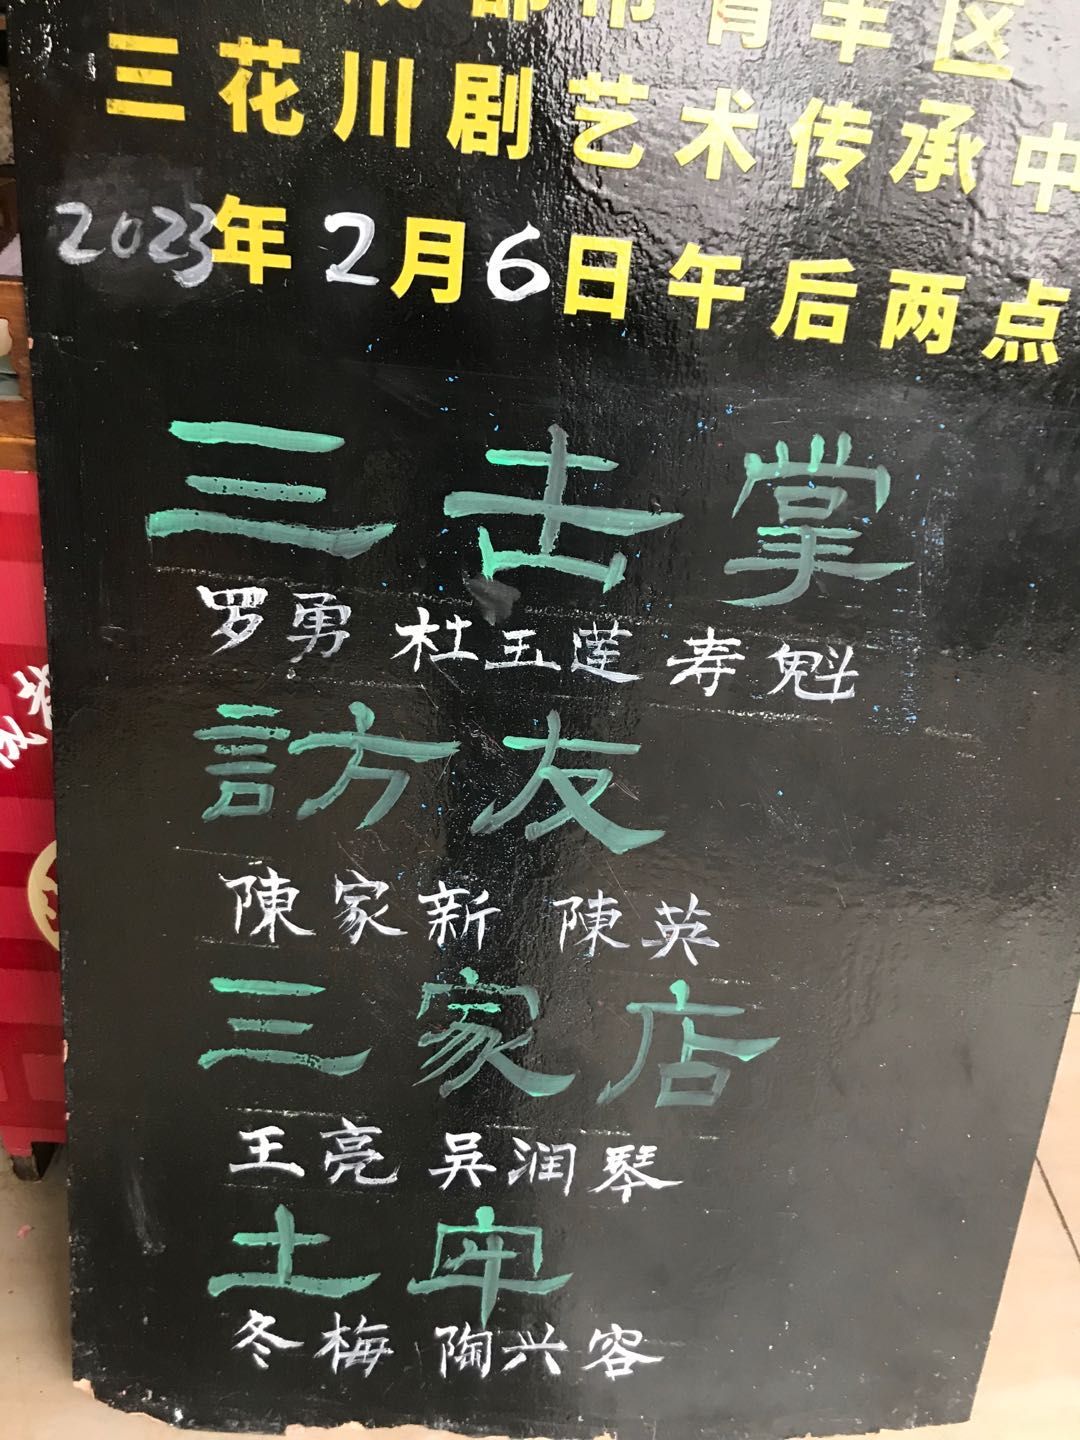 成都市青羊区
三花川剧艺术传承中
2023年2月6日午后两点
三击掌
罗勇 杜玉莲 寿魁
訪友
陳家新 陳英
三家店
王亮 吴润琴
土牢
冬梅 陶兴容